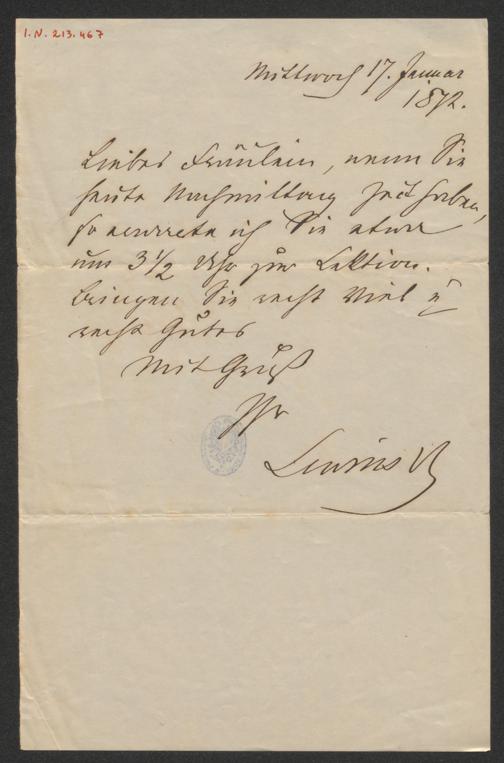 I.N. 213.467
Mittwoch 17. Januar
1872.
Liebes Fräulein, wenn Sie
heute Nachmittag Zeit haben,
so erwarte ich Sie etwa
um 3 1/2 Uhr zur Lektion.
Bringen Sie recht Viel u
recht Gutes
Mit Gruß
Ihr
Lewinsky